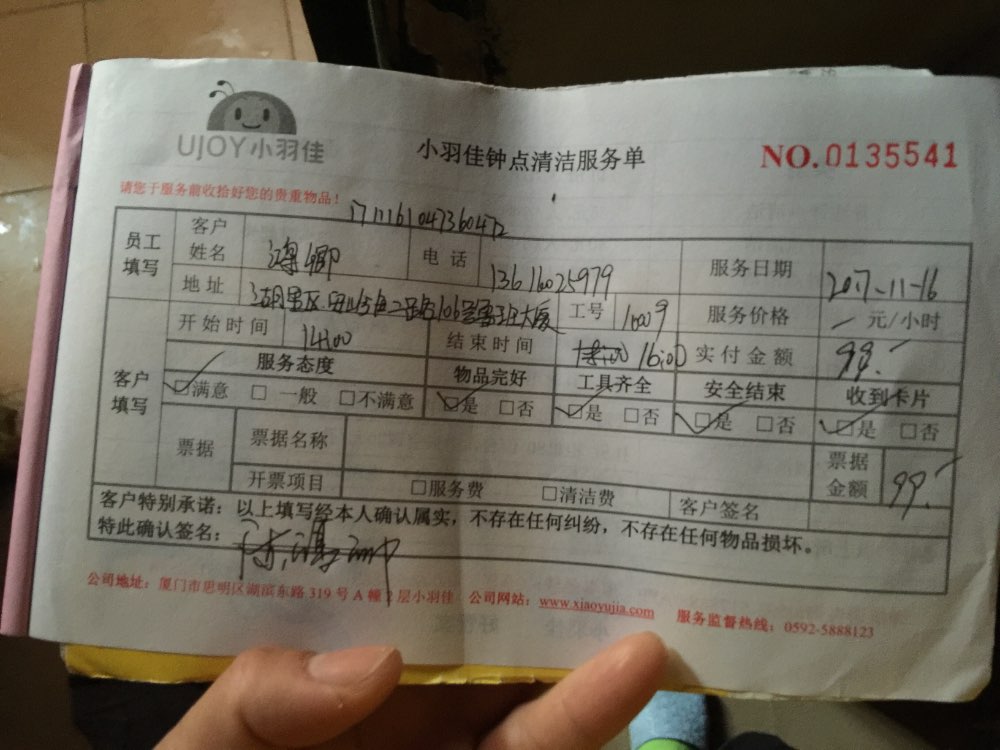 UJOY小羽佳
小羽佳钟点清洁服务单
NO.0135541
请您于服务前收拾好您的贵重物品!
17111610473604
员工填写 客户姓名 鸿卿 电话 13616025979 服务日期 2017-11-16
地址 湖里区 二 106 大厦 工号 10009 服务价格 元/小时
开始时间 14:00 结束时间 16:00 实付金额 99.-
客户填写 服务态度 物品完好 工具齐全 安全结束 收到卡片
□满意 □一般 □不满意 □是 □否 □是 □否 □是 □否 □是 □否
票据 票据名称 票据金额 99.-
开票项目 □服务费 □清洁费 客户签名
客户特别承诺:以上填写经本人确认属实,不存在任何纠纷,不存在任何物品损坏。
特此确认签名: 陈鸿卿
公司地址:厦门市思明区湖滨东路 319 号 A 幢 2 层小羽佳 公司网站:www.xiaoyujia.com 服务监督热线:0592-5888123